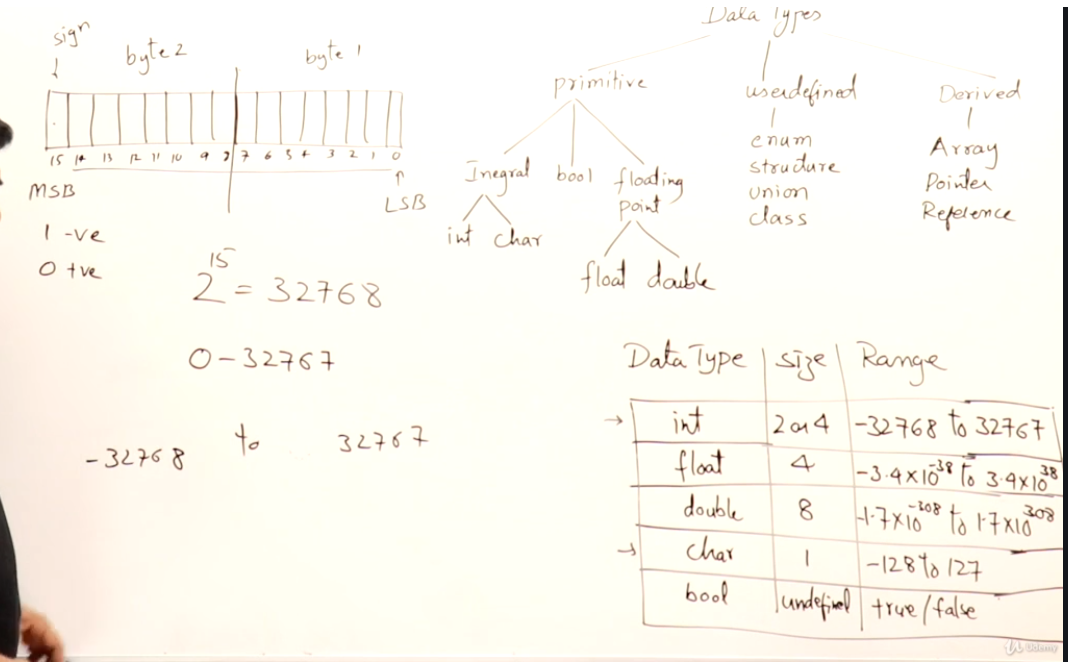 sign
byte 2
byte 1
15 14 13 12 11 10 9 8 7 6 5 4 3 2 1 0
MSB
LSB
1 -ve
0 +ve
2^15 = 32768
0 - 32767
-32768 to 32767
Data Types
primitive
userdefined
Derived
Inegral
bool
floating
point
int char
float double
enum
structure
union
class
Array
Pointer
Reference
Data Type | size | Range
int | 2 or 4 | -32768 to 32767
float | 4 | -3.4×10^-38 to 3.4×10^38
double | 8 | -1.7×10^-308 to 1.7×10^308
char | 1 | -128 to 127
bool | undefined | true/false
Udemy